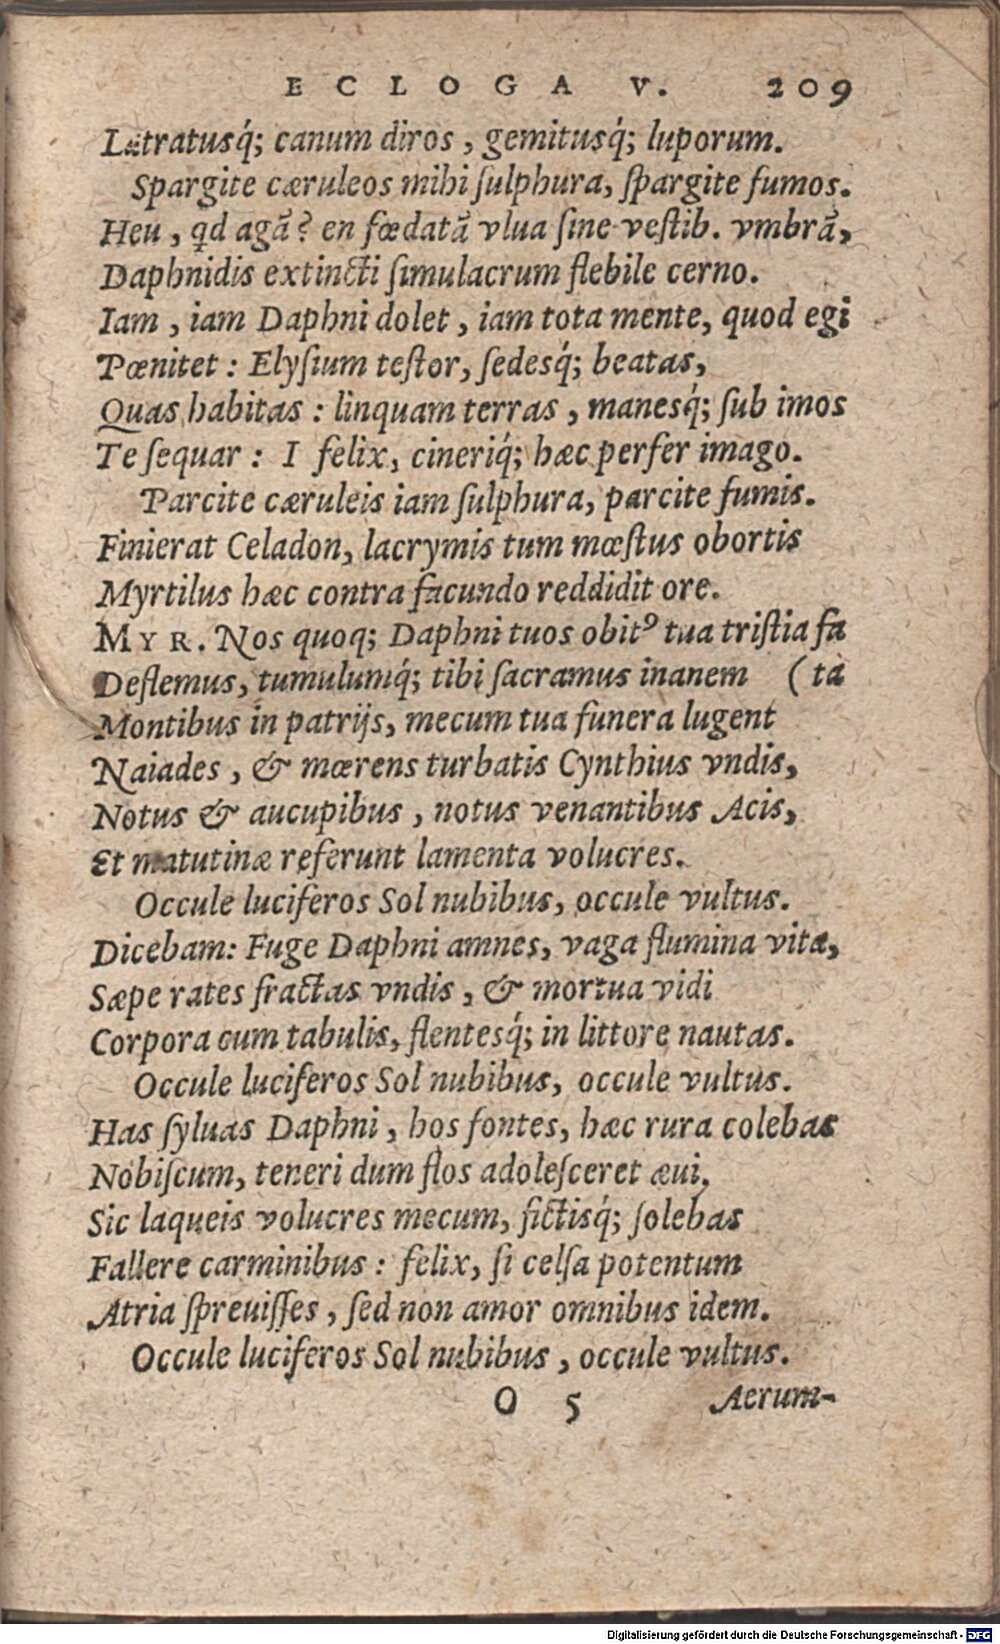 ECLOGA V. 209
Latratusq́; canum diros, gemitusq́; luporum.
Spargite cæruleos mihi ſulphura, ſpargite fumos.
Heu, qd agã? en fœdatã vlua ſine veſtib. vmbrã,
Daphnidis extincti ſimulacrum flebile cerno.
Iam, iam Daphni dolet, iam tota mente, quod egi
Pœnitet: Elyſium teſtor, ſedesq́; beatas,
Quas habitas: linquam terras, manesq́; ſub imos
Te ſequar: I felix, cineriq́; hæc perfer imago.
Parcite cæruleis iam ſulphura, parcite fumis.
Finierat Celadon, lacrymis tum mœſtus obortis
Myrtilus hæc contra facundo reddidit ore.
MYR. Nos quoq; Daphni tuos obitꝰ tua triſtia fa
Deflemus, tumulumq́; tibi ſacramus inanem (ta
Montibus in patrijs, mecum tua funera lugent
Naiades, & mœrens turbatis Cynthius vndis,
Notus & aucupibus, notus venantibus Acis,
Et matutinæ referunt lamenta volucres.
Occule luciferos Sol nubibus, occule vultus.
Dicebam: Fuge Daphni amnes, vaga flumina vita,
Sæpe rates fractas vndis, & mortua vidi
Corpora cum tabulis, flentesq́; in littore nautas.
Occule luciferos Sol nubibus, occule vultus.
Has ſyluas Daphni, hos fontes, hæc rura colebas
Nobiſcum, teneri dum flos adoleſceret æui,
Sic laqueis volucres mecum, fictisq́; ſolebas
Fallere carminibus: felix, ſi celſa potentum
Atria ſpreuiſſes, ſed non amor omnibus idem.
Occule luciferos Sol nubibus, occule vultus.
O 5 Aerum-
Digitalisierung gefördert durch die Deutsche Forschungsgemeinschaft - DFG